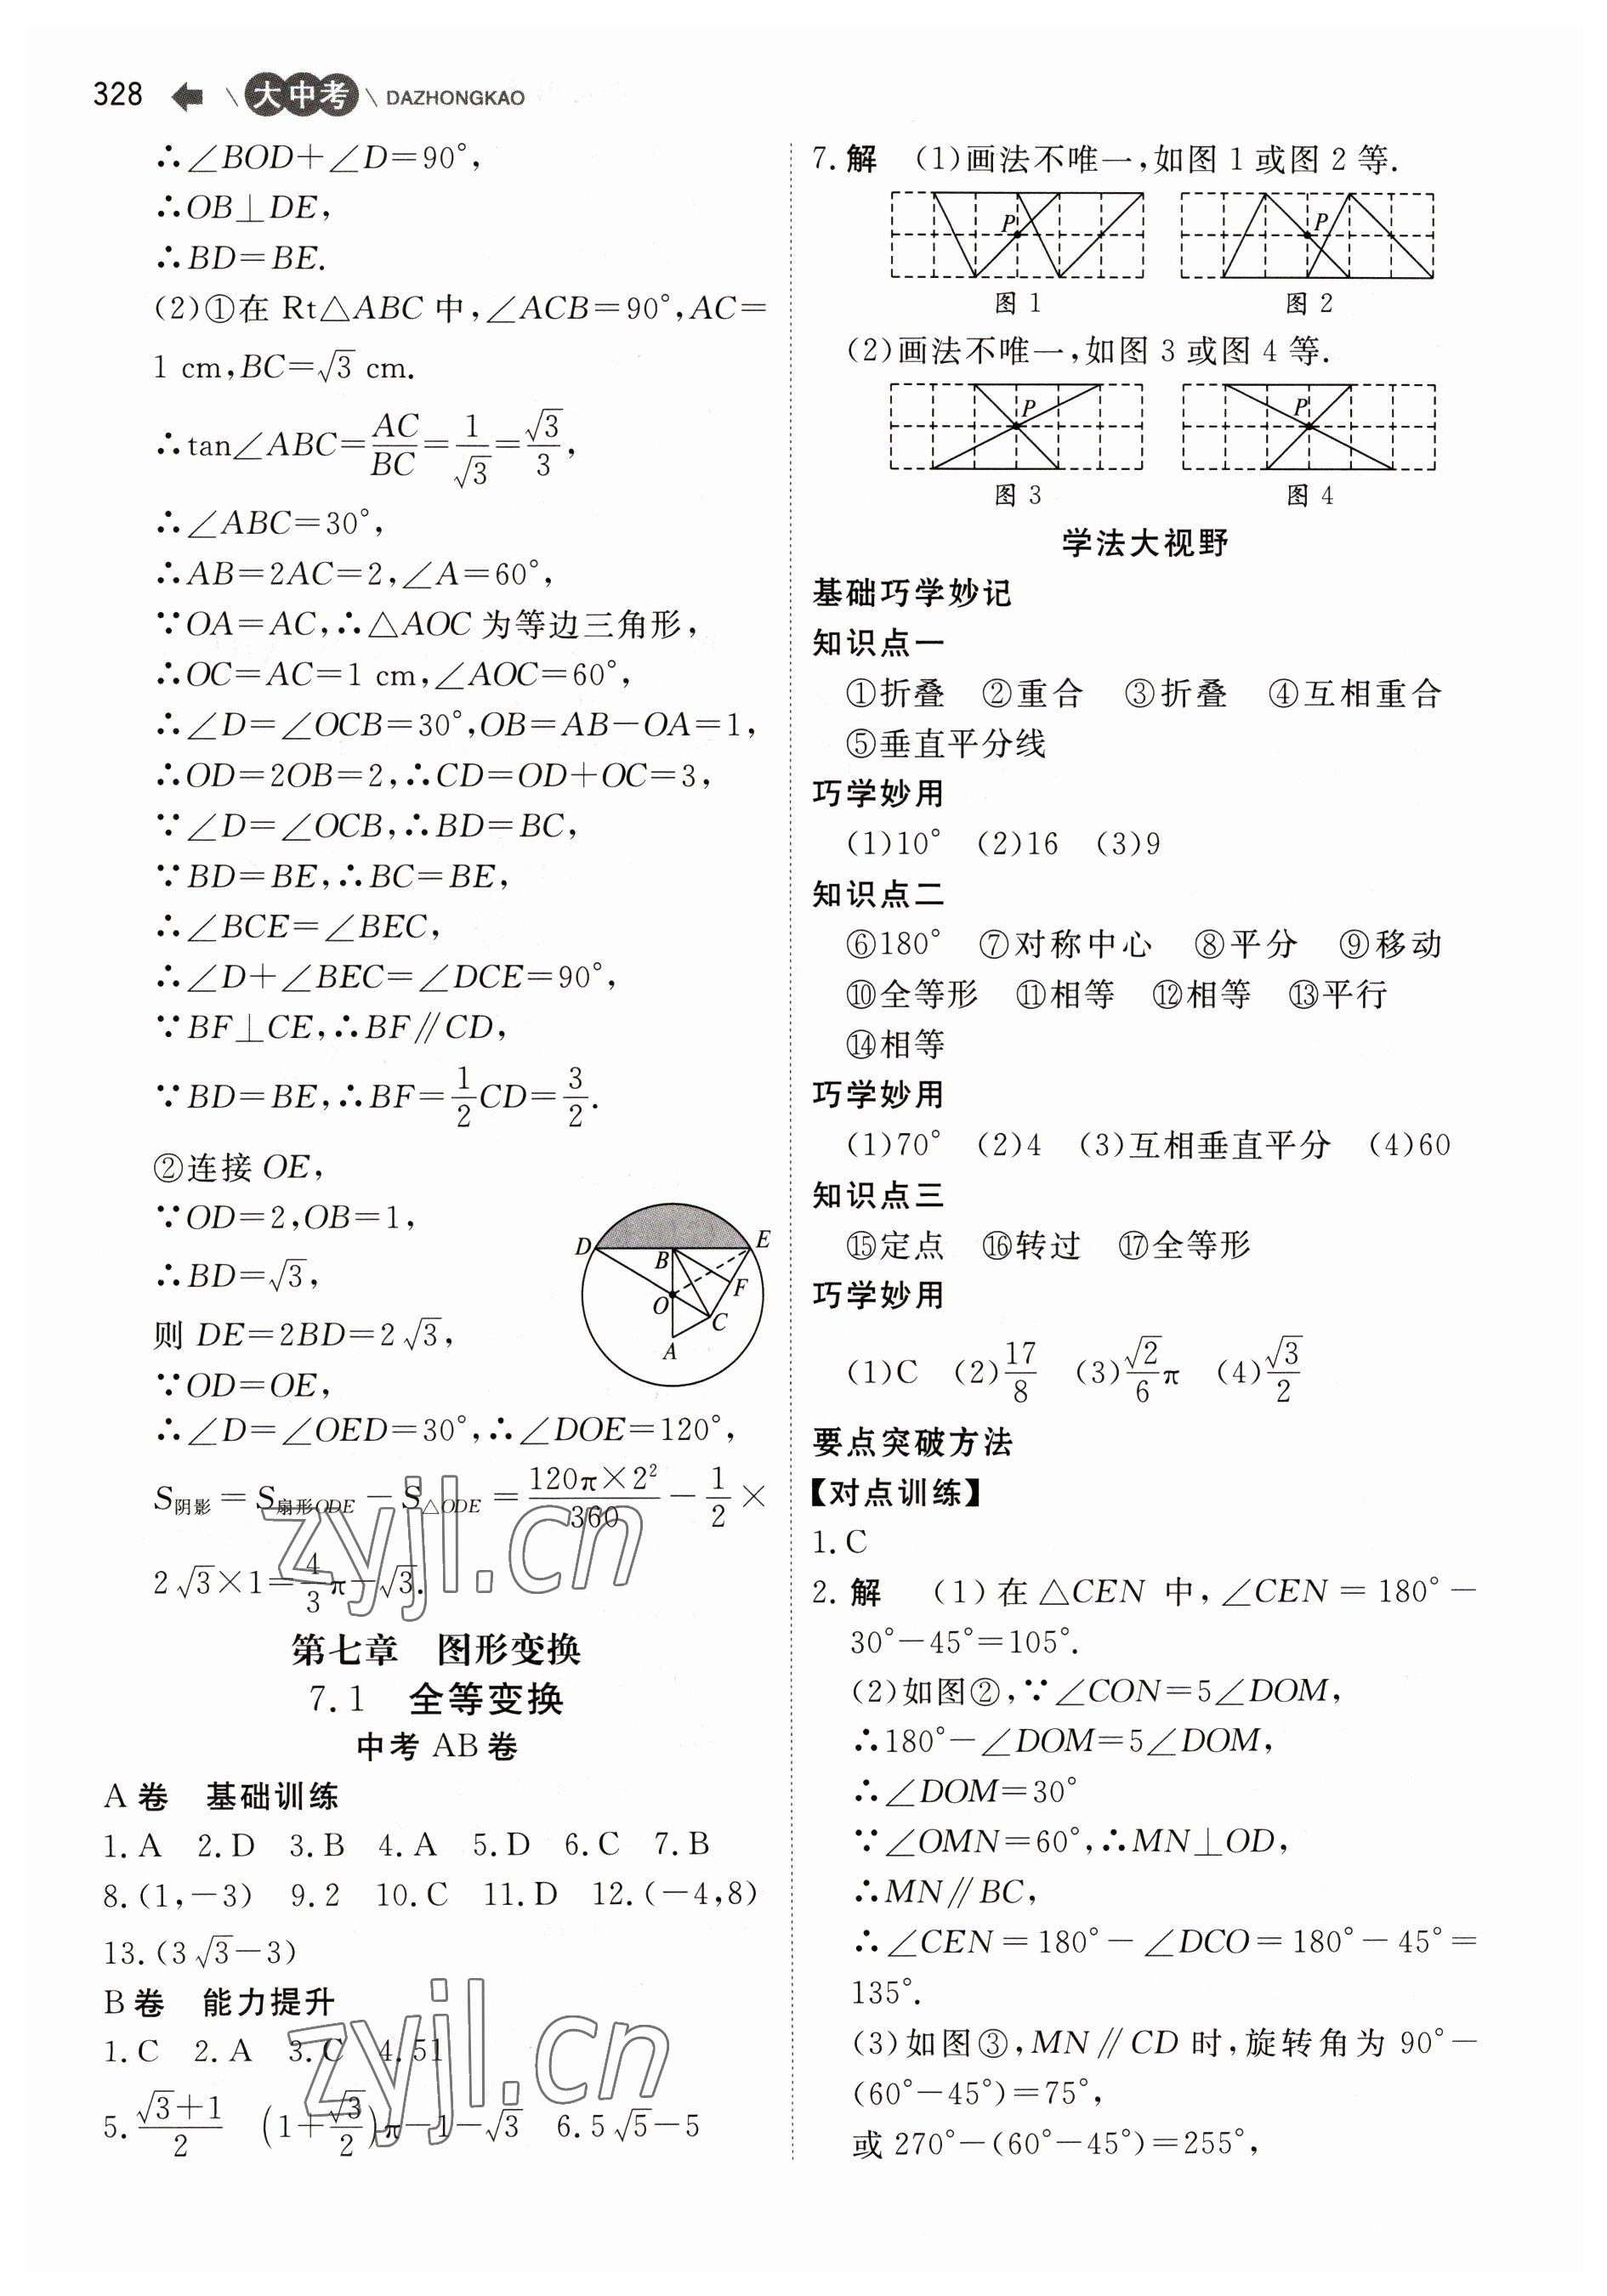 328 大中考 DAZHONGKAO
∴∠BOD+∠D=90°,
∴OB⊥DE,
∴BD=BE.
(2)①在 Rt△ABC 中,∠ACB=90°,AC=
1 cm,BC=√3 cm.
∴tan∠ABC=AC/BC=1/√3=√3/3,
∴∠ABC=30°,
∴AB=2AC=2,∠A=60°,
∵OA=AC,∴△AOC 为等边三角形,
∴OC=AC=1 cm,∠AOC=60°,
∴∠D=∠OCB=30°,OB=AB-OA=1,
∴OD=2OB=2,∴CD=OD+OC=3,
∵∠D=∠OCB,∴BD=BC,
∵BD=BE,∴BC=BE,
∴∠BCE=∠BEC,
∴∠D+∠BEC=∠DCE=90°,
∵BF⊥CE,∴BF∥CD,
∵BD=BE,∴BF=1/2CD=3/2.
②连接 OE,
∵OD=2,OB=1,
∴BD=√3,
则 DE=2BD=2√3,
∵OD=OE,
D B E F O C A
∴∠D=∠OED=30°,∴∠DOE=120°,
S阴影=S扇形ODE-S△ODE=120π×2²/360-1/2×
2√3×1=4/3π-√3.
第七章 图形变换
7.1 全等变换
中考 AB 卷
A 卷 基础训练
1.A 2.D 3.B 4.A 5.D 6.C 7.B
8.(1,-3) 9.2 10.C 11.D 12.(-4,8)
13.(3√3-3)
B 卷 能力提升
1.C 2.A 3.C 4.51
5.(√3+1)/2 (1+√3/2)π-1-√3 6.5√5-5
zyjl.cn
zyjl.cn
7.解 (1)画法不唯一,如图 1 或图 2 等.
P P
图 1 图 2
(2)画法不唯一,如图 3 或图 4 等.
P P
图 3 图 4
学法大视野
基础巧学妙记
知识点一
①折叠 ②重合 ③折叠 ④互相重合
⑤垂直平分线
巧学妙用
(1)10° (2)16 (3)9
知识点二
⑥180° ⑦对称中心 ⑧平分 ⑨移动
⑩全等形 ⑪相等 ⑫相等 ⑬平行
⑭相等
巧学妙用
(1)70° (2)4 (3)互相垂直平分 (4)60
知识点三
⑮定点 ⑯转过 ⑰全等形
巧学妙用
(1)C (2)17/8 (3)√2/6π (4)√3/2
要点突破方法
【对点训练】
1.C
2.解 (1)在△CEN 中,∠CEN=180°-
30°-45°=105°.
(2)如图②,∵∠CON=5∠DOM,
∴180°-∠DOM=5∠DOM,
∴∠DOM=30°
∵∠OMN=60°,∴MN⊥OD,
∴MN∥BC,
∴∠CEN=180°-∠DCO=180°-45°=
135°.
(3)如图③,MN∥CD 时,旋转角为 90°-
(60°-45°)=75°,
或 270°-(60°-45°)=255°,